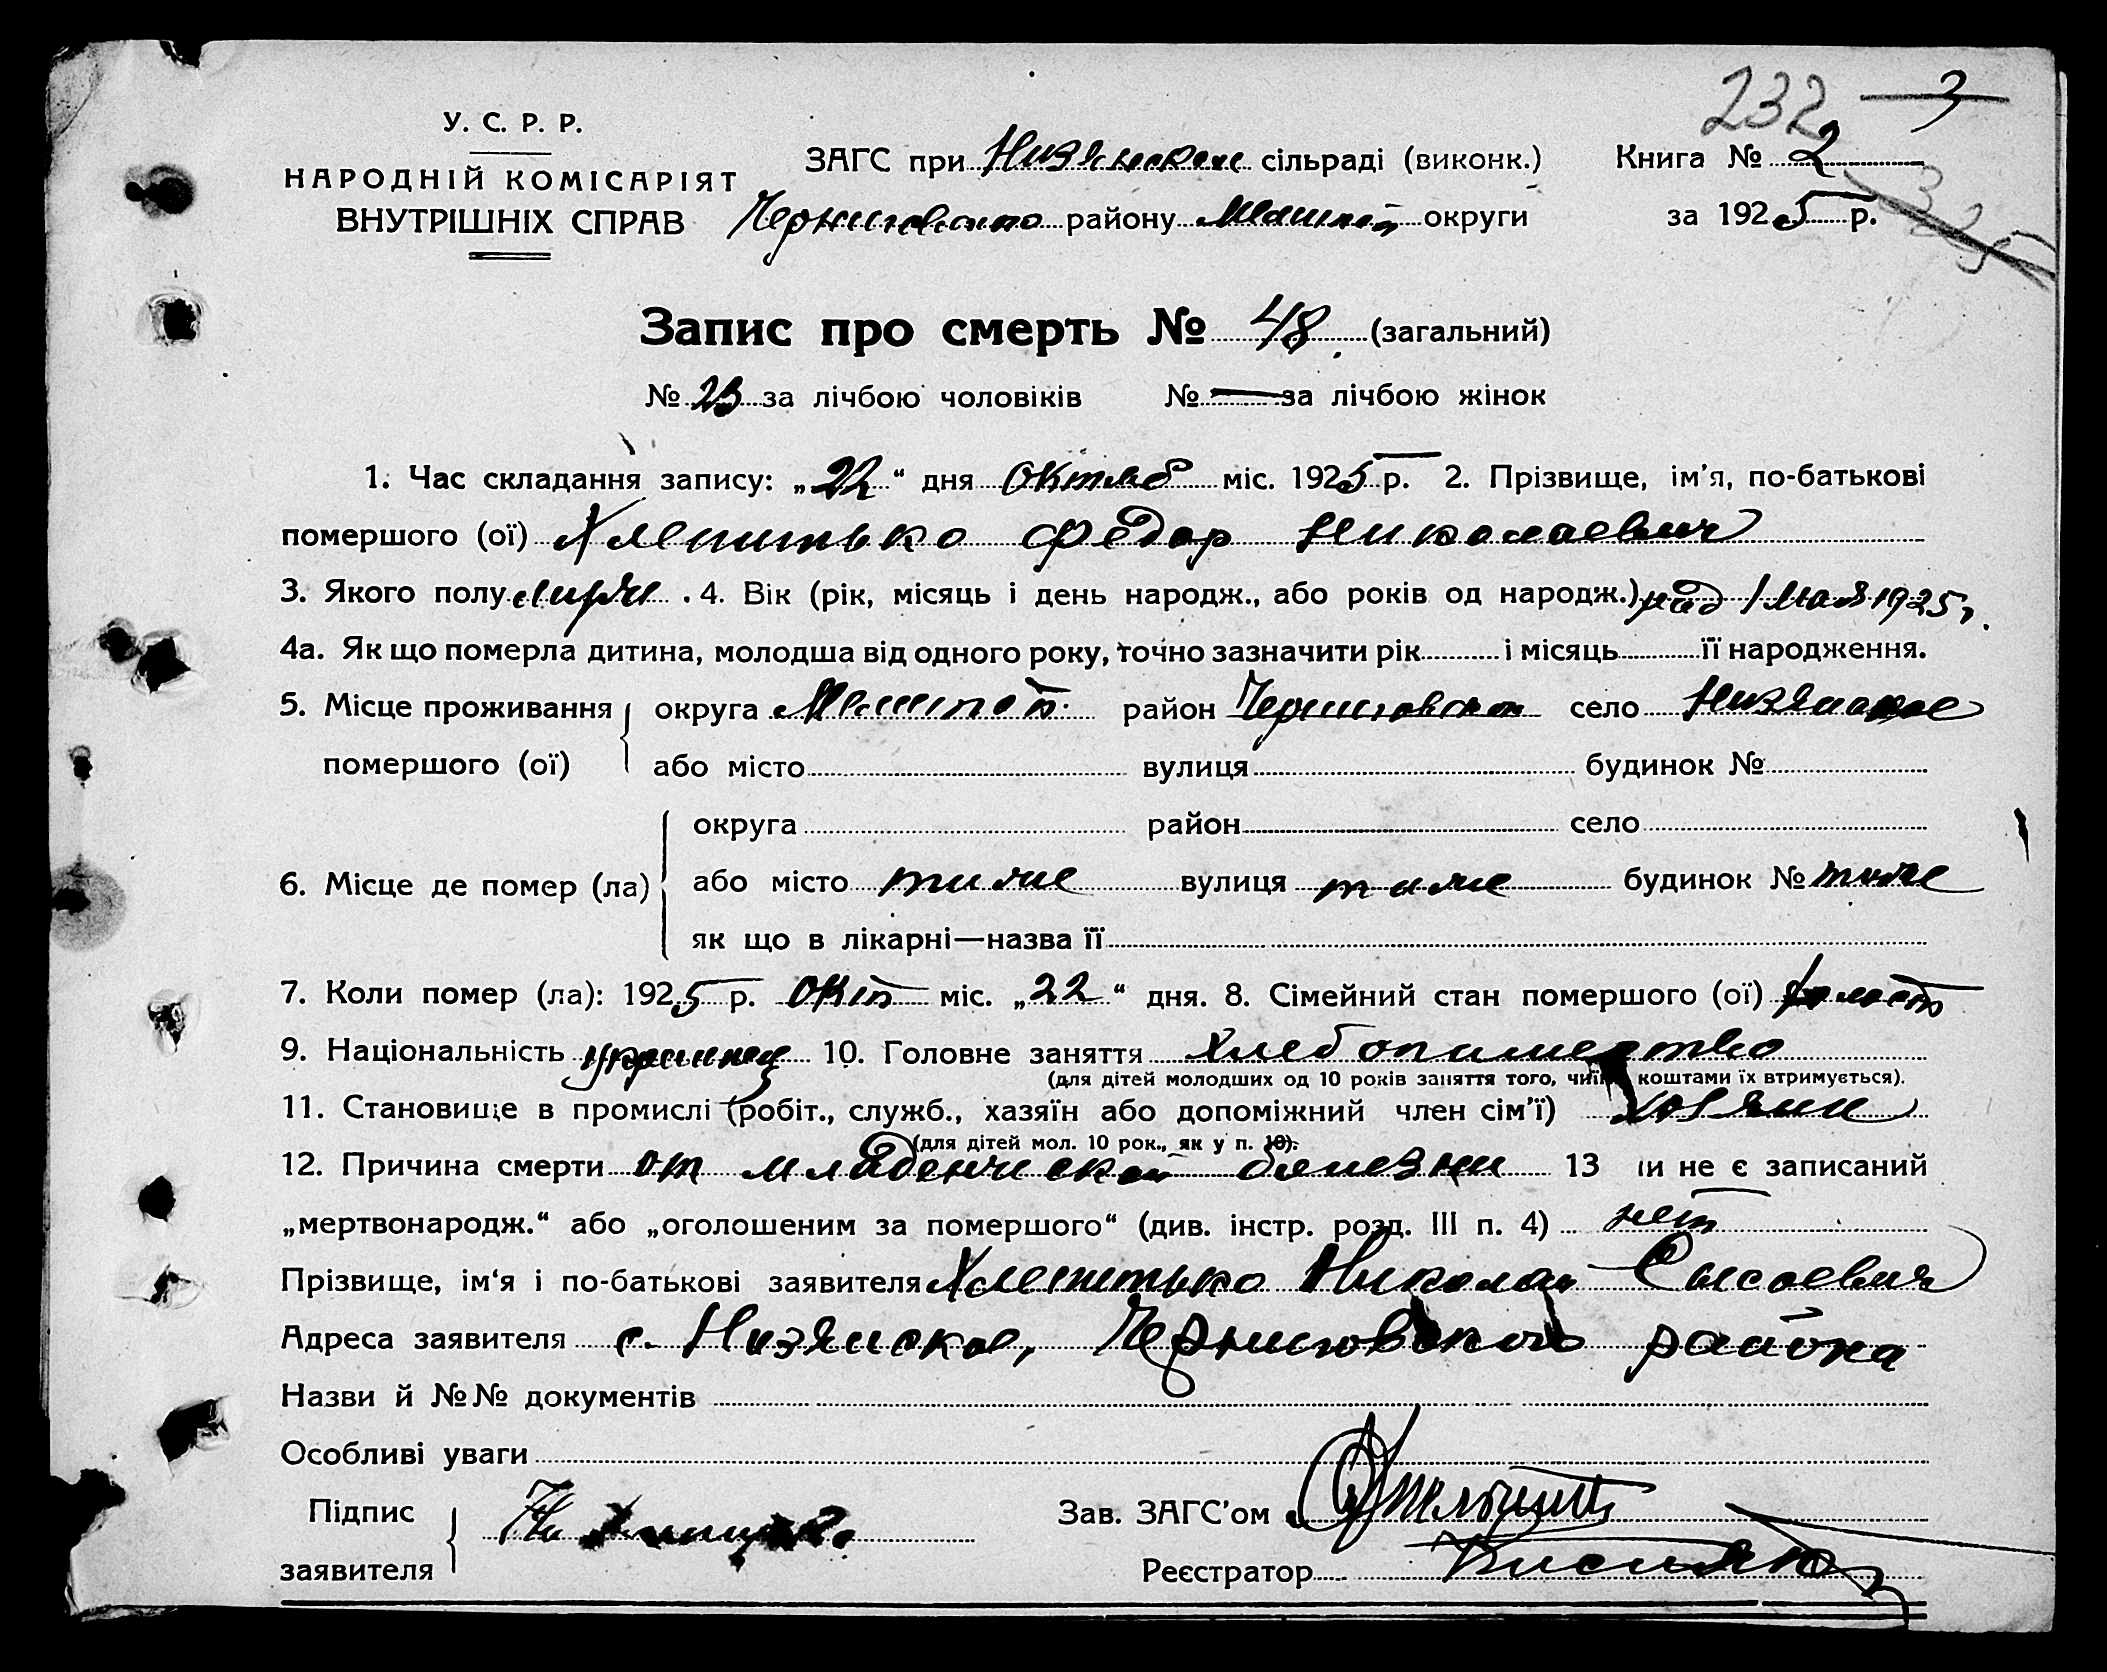 232 3
У. С. Р. Р.
НАРОДНІЙ КОМІСАРІЯТ
ВНУТРІШНІХ СПРАВ
ЗАГС при Низянском сільраді (виконк.) Книга № 2
Черниговского району Мелитоп округи за 1925 р.
325
Запис про смерть № 48 (загальний)
№ 23 за лічбою чоловіків № — за лічбою жінок
1. Час складання запису: „22“ дня Октяб міс. 1925 р. 2. Прізвище, ім'я, по-батькові
помершого (ої) Хлепитько Федор Николаевич
3. Якого полу муж. 4. Вік (рік, місяць і день народж., або років од народж.) 1 мая 1925 г.
4а. Як що померла дитина, молодша від одного року, точно зазначити рік і місяць її народження.
5. Місце проживання округа Мелитоп. район Черниговском село Низянское
помершого (ої) або місто вулиця будинок №
округа район село
6. Місце де помер (ла) або місто тоже вулиця тоже будинок № тоже
як що в лікарні—назва її
7. Коли помер (ла): 1925 р. Окт міс. „22“ дня. 8. Сімейний стан помершого (ої) холост
9. Національність украинец 10. Головне заняття Хлебопашество
(для дітей молодших од 10 років заняття того, чиїм коштами їх втримується).
11. Становище в промислі (робіт., служб., хазяїн або допоміжний член сім'ї) Хозяин
(для дітей мол. 10 рок., як у п. 10).
12. Причина смерти от младенческой болезни 13 чи не є записаний
„мертвонародж.“ або „оголошеним за помершого“ (див. інстр. розд. III п. 4) нет
Прізвище, ім'я і по-батькові заявителя Хлепитько Николай Сысоевич
Адреса заявителя с. Низянское, Черниговского района
Назви й №№ документів
Особливі уваги
Підпис
заявителя
Зав. ЗАГС'ом
Реєстратор